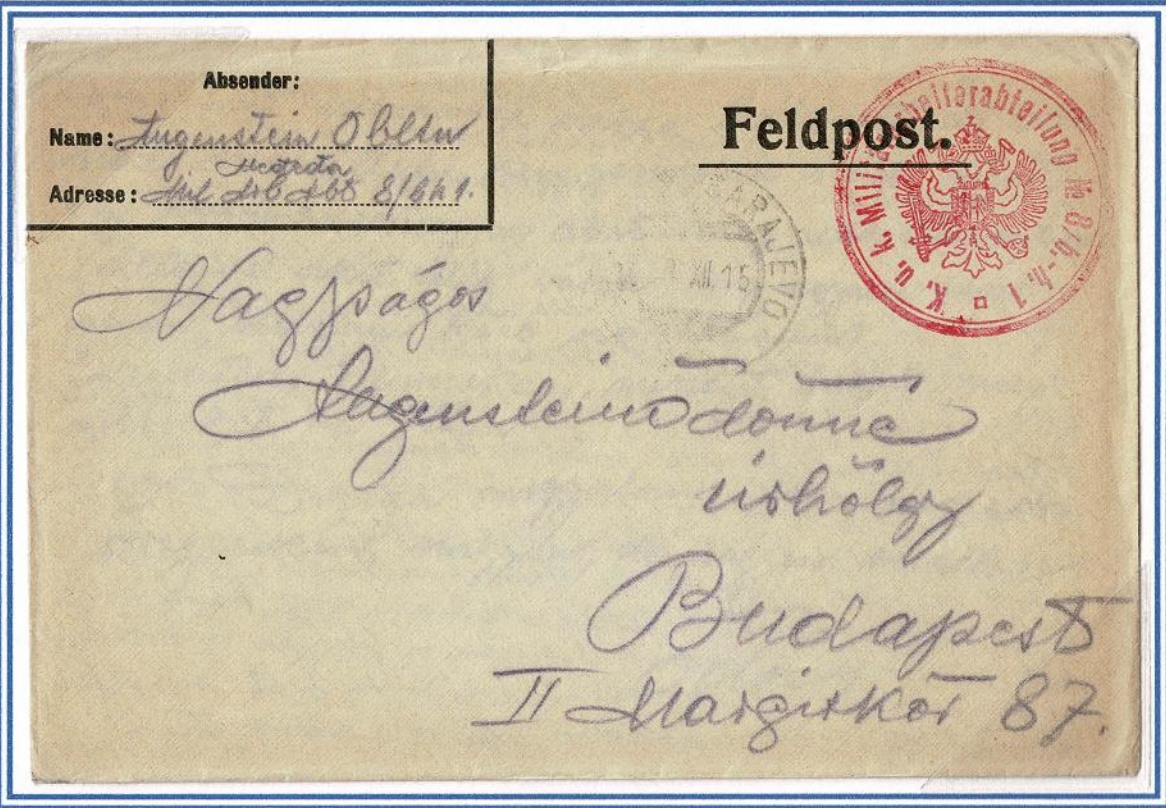 Absender:
Name: Augenstein Obltn
Adresse: Mil Arb Abt 8/bh 1.
Feldpost.
K. u. k. Militärarbeiterabteilung № 8/b.-h. 1
SARAJEVO
XII.15
Nagyságos
Augenstein Ödönné
úrhölgy
Budapest
II Margitkör 87.